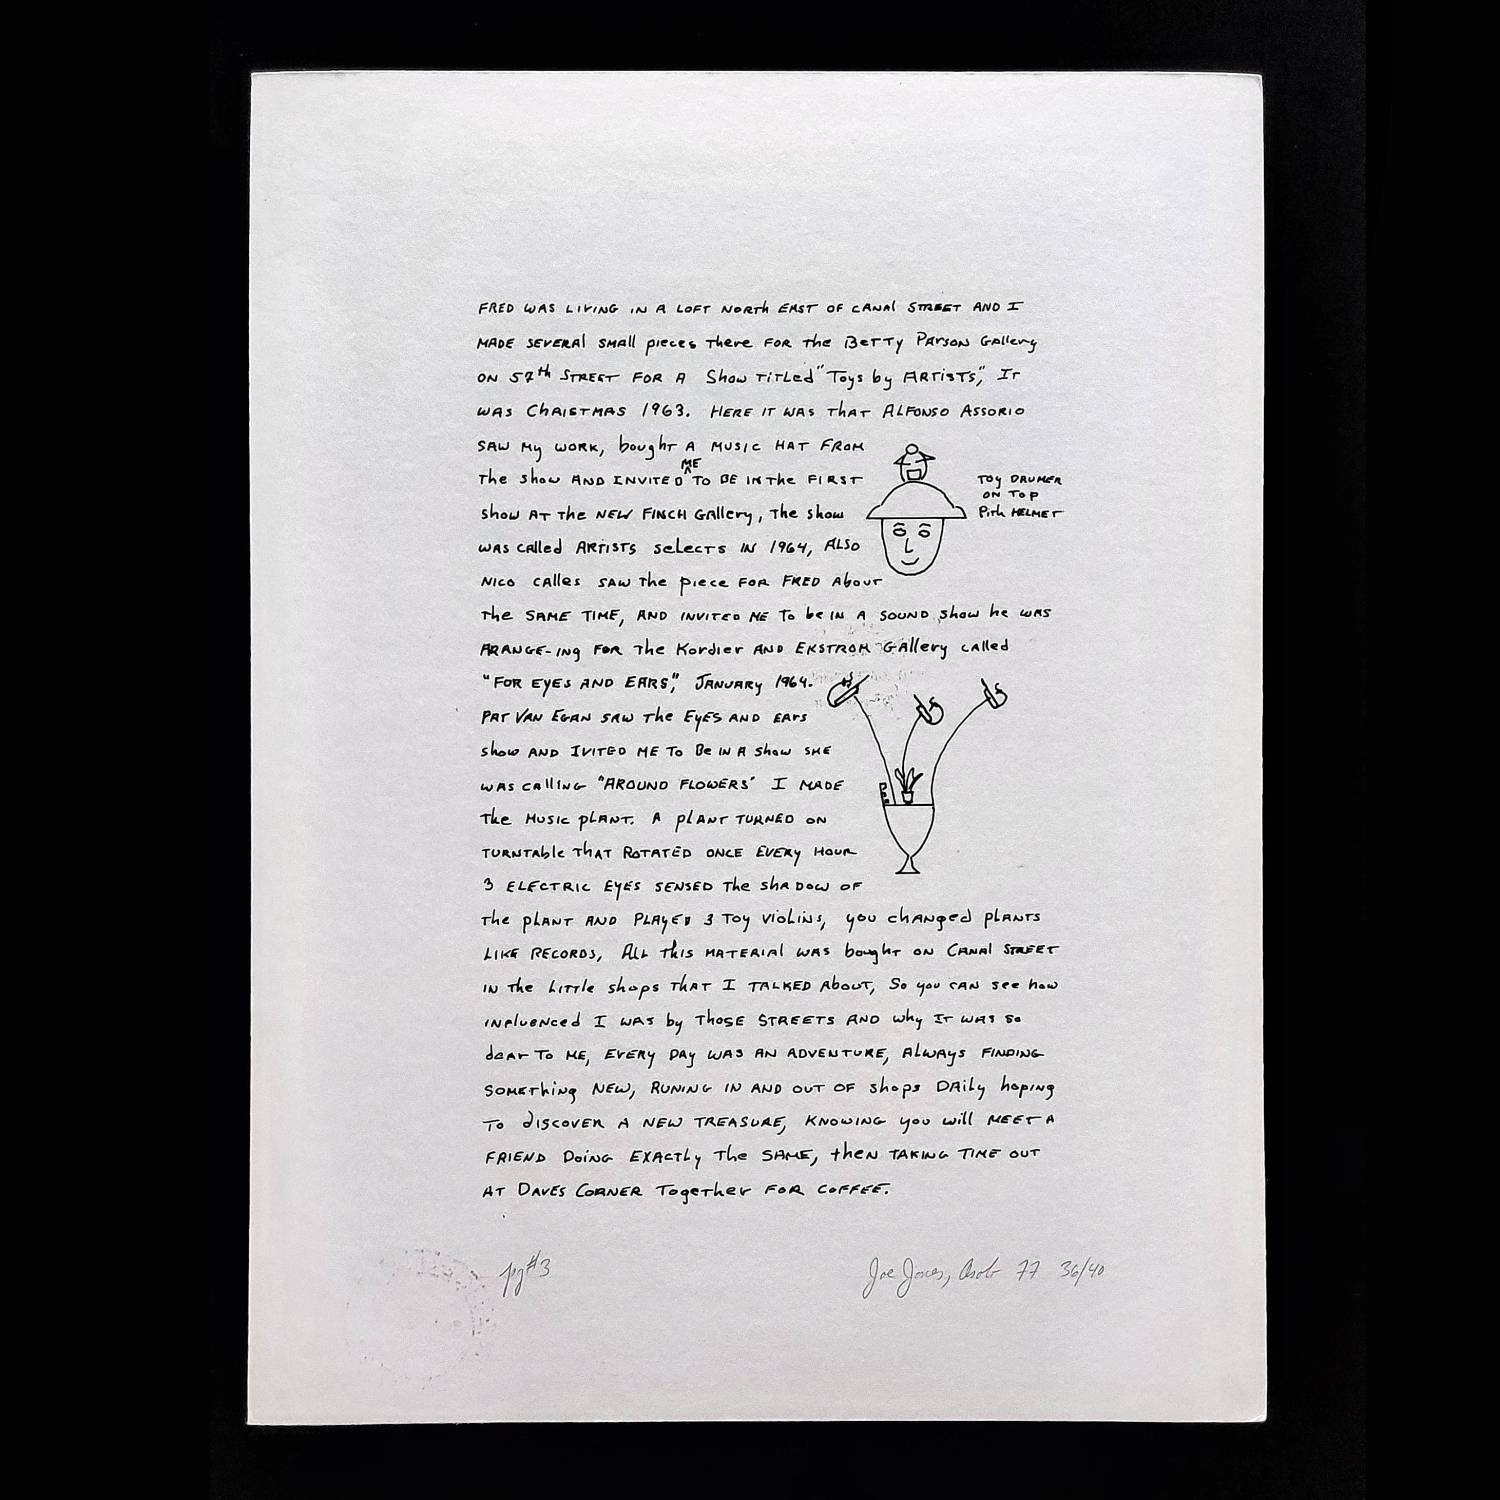 FRED WAS LIVING IN A LOFT NORTH EAST OF CANAL STREET AND I
MADE SEVERAL SMALL PIECES THERE FOR THE BETTY PARSON GALLERY
ON 57th STREET FOR A SHOW TITLED "TOYS BY ARTISTS", IT
WAS CHRISTMAS 1963. HERE IT WAS THAT ALFONSO ASSORIO
SAW MY WORK, BOUGHT A MUSIC HAT FROM
THE SHOW AND INVITED ME TO BE IN THE FIRST
SHOW AT THE NEW FINCH GALLERY, THE SHOW
WAS CALLED ARTISTS SELECTS IN 1964, ALSO
NICO CALLES SAW THE PIECE FOR FRED ABOUT
THE SAME TIME, AND INVITED ME TO BE IN A SOUND SHOW HE WAS
ARANGE-ING FOR THE KORDIER AND EKSTROM GALLERY CALLED
"FOR EYES AND EARS", JANUARY 1964.
PAT VAN EGAN SAW THE EYES AND EARS
SHOW AND IVITED ME TO BE IN A SHOW SHE
WAS CALLING "AROUND FLOWERS" I MADE
THE MUSIC PLANT. A PLANT TURNED ON
TURNTABLE THAT ROTATED ONCE EVERY HOUR
3 ELECTRIC EYES SENSED THE SHADOW OF
THE PLANT AND PLAYED 3 TOY VIOLINS, YOU CHANGED PLANTS
LIKE RECORDS, ALL THIS MATERIAL WAS BOUGHT ON CANAL STREET
IN THE LITTLE SHOPS THAT I TALKED ABOUT, SO YOU CAN SEE HOW
INFLUENCED I WAS BY THOSE STREETS AND WHY IT WAS SO
DEAR TO ME, EVERY DAY WAS AN ADVENTURE, ALWAYS FINDING
SOMETHING NEW, RUNING IN AND OUT OF SHOPS DAILY HOPING
TO DISCOVER A NEW TREASURE, KNOWING YOU WILL MEET A
FRIEND DOING EXACTLY THE SAME, THEN TAKING TIME OUT
AT DAVES CORNER TOGETHER FOR COFFEE.
TOY DRUMER
ON TOP
PITH HELMET
pg#3
Joe Jones, Asolo 77 36/40